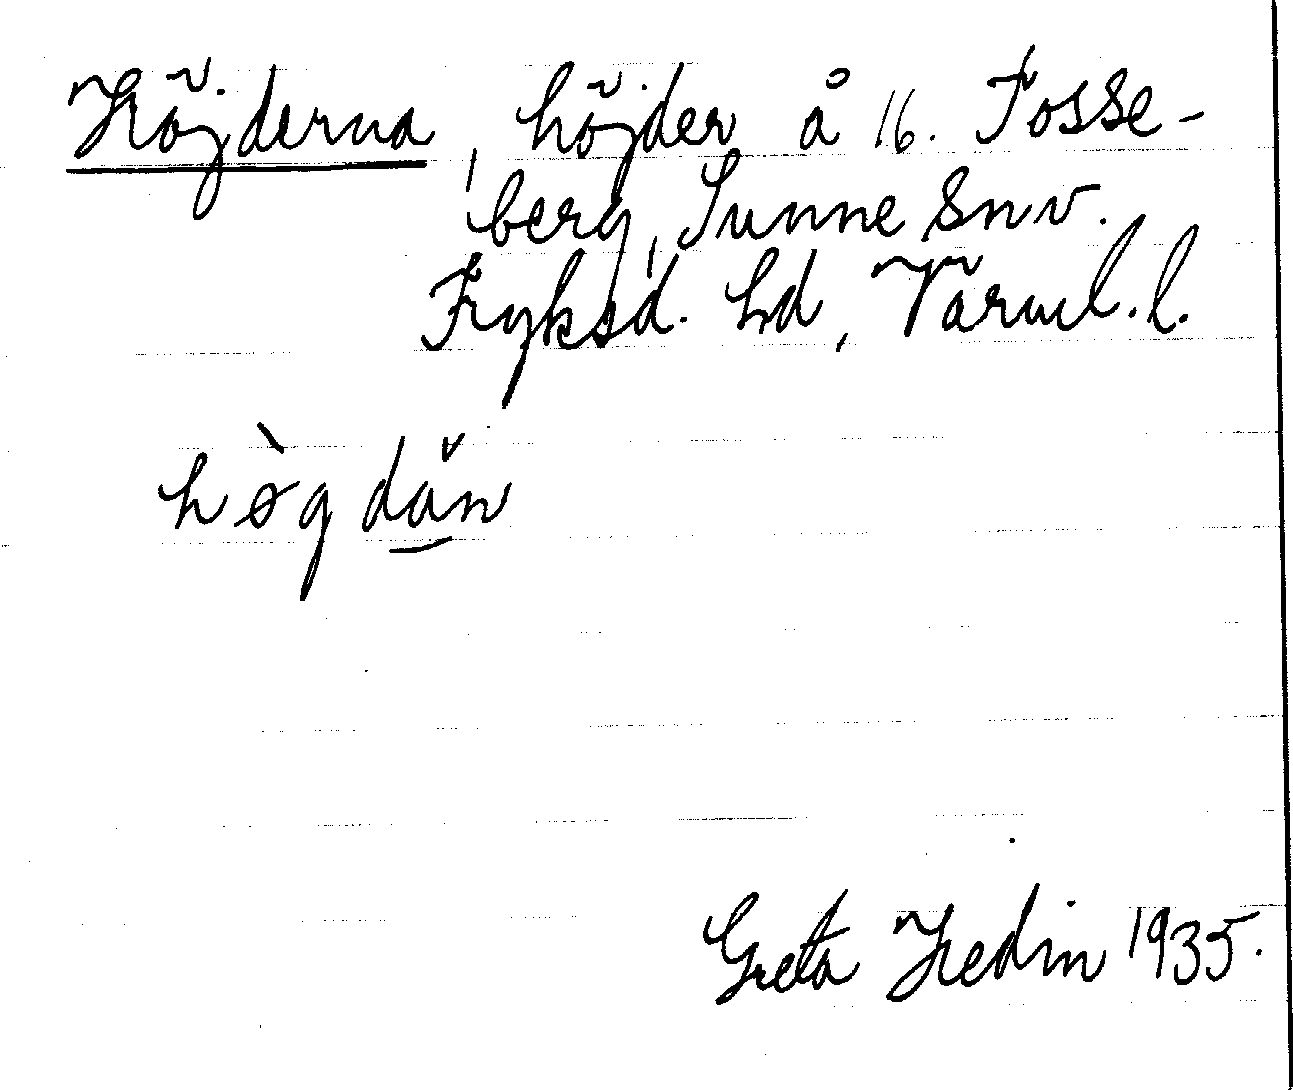 Höjderna, höjder å 16. Fosse-
berg, Sunne snv.
Fryksd. hd, Värml. l.
hø̀gdǎn
Greta Hedin 1935.